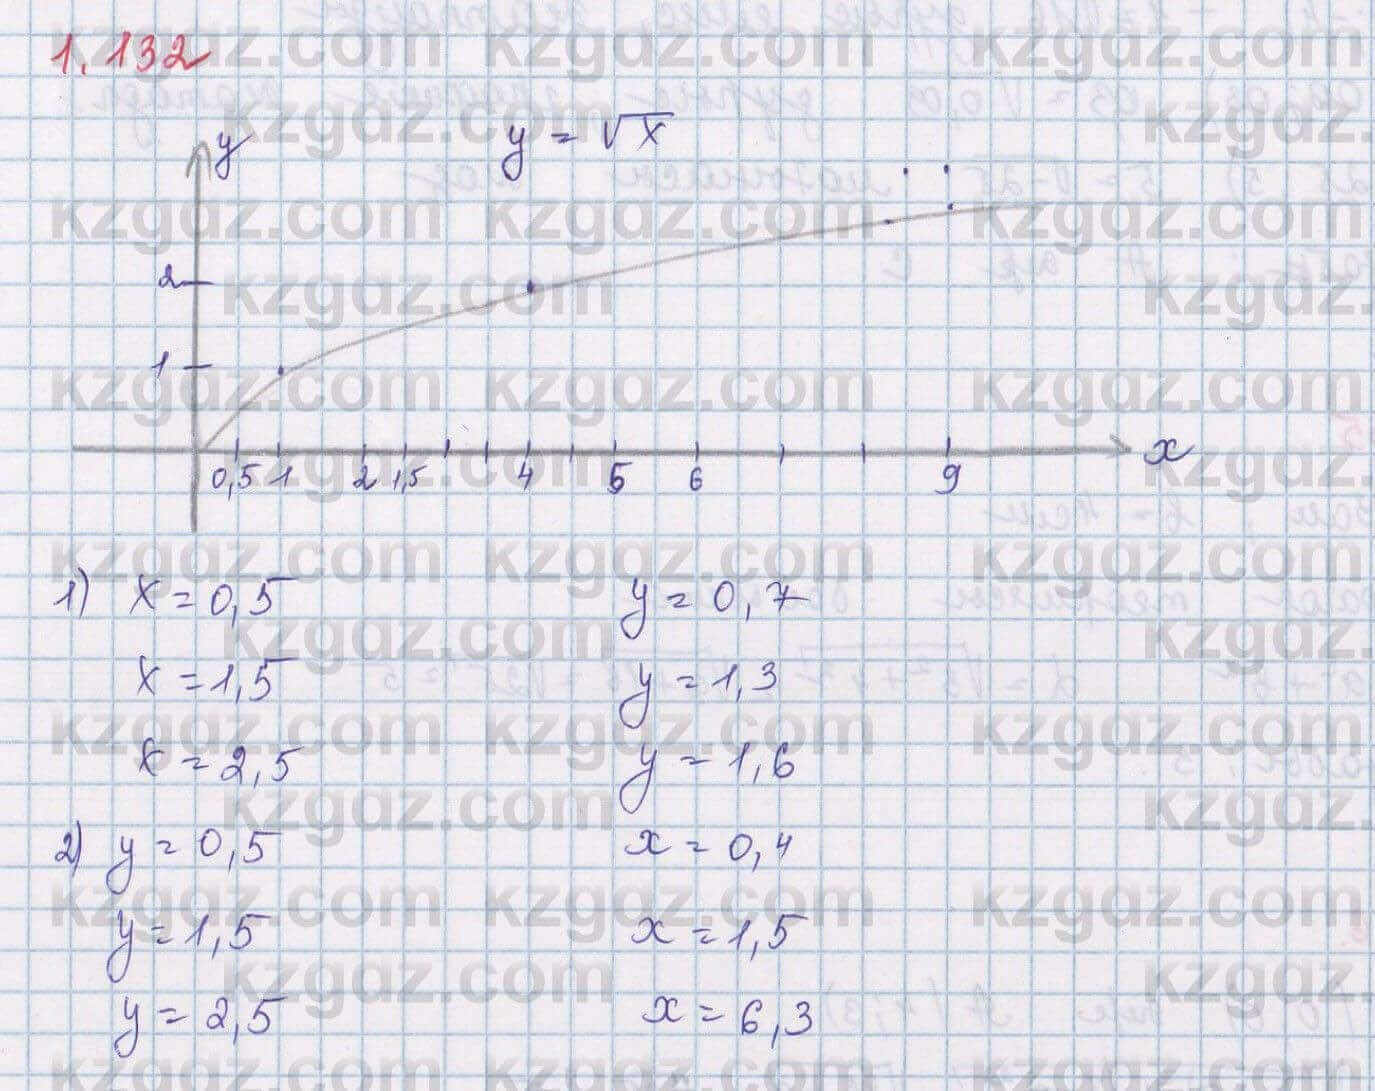 1.132
y = √x
y
2
1
0,5 1 2 1,5 4 5 6 9 x
1) x = 0,5 y = 0,7
x = 1,5 y = 1,3
x = 2,5 y = 1,6
2) y = 0,5 x = 0,4
y = 1,5 x = 1,5
y = 2,5 x = 6,3
kzgdz.com